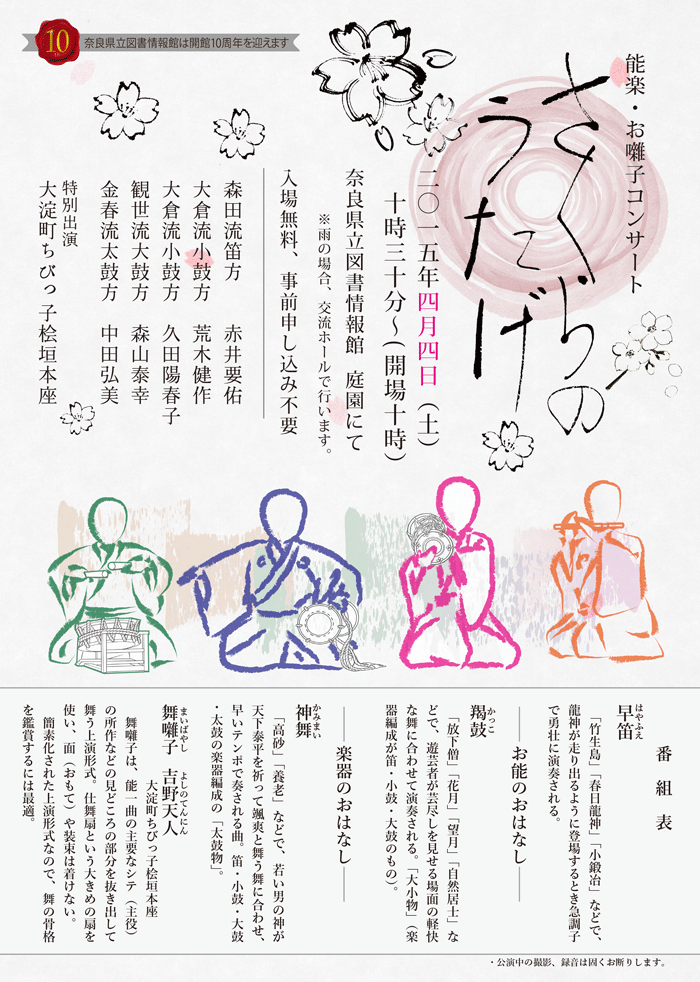 10
奈良県立図書情報館は開館10周年を迎えます
能楽・お囃子コンサート
さくらの
うたげ
二〇一五年四月四日（土）
十時三十分〜(開場十時)
奈良県立図書情報館 庭園にて
※雨の場合、交流ホールで行います。
入場無料、事前申し込み不要
森田流笛方 赤井要佑
大倉流小鼓方 荒木健作
大倉流小鼓方 久田陽春子
観世流大鼓方 森山泰幸
金春流太鼓方 中田弘美
特別出演
大淀町ちびっ子桧垣本座
番組表
はやふえ
早笛
「竹生島」「春日龍神」「小鍛冶」などで、
龍神が走り出るように登場するとき急調子
で勇壮に演奏される。
――お能のおはなし――
かっこ
羯鼓
「放下僧」「花月」「望月」「自然居士」な
どで、遊芸者が芸尽しを見せる場面の軽快
な舞に合わせて演奏される。「大小物」（楽
器編成が笛・小鼓・大鼓のもの）。
――楽器のおはなし――
かみまい
神舞
「高砂」「養老」などで、若い男の神が
天下泰平を祈って颯爽と舞う舞に合わせ、
早いテンポで奏される曲。笛・小鼓・大鼓
・太鼓の楽器編成の「太鼓物」。
まいばやし よしのてんにん
舞囃子 吉野天人
大淀町ちびっ子桧垣本座
舞囃子は、能一曲の主要なシテ（主役）
の所作などの見どころの部分を抜き出して
舞う上演形式。仕舞扇という大きめの扇を
使い、面（おもて）や装束は着けない。
簡素化された上演形式なので、舞の骨格
を鑑賞するには最適。
・公演中の撮影、録音は固くお断りします。